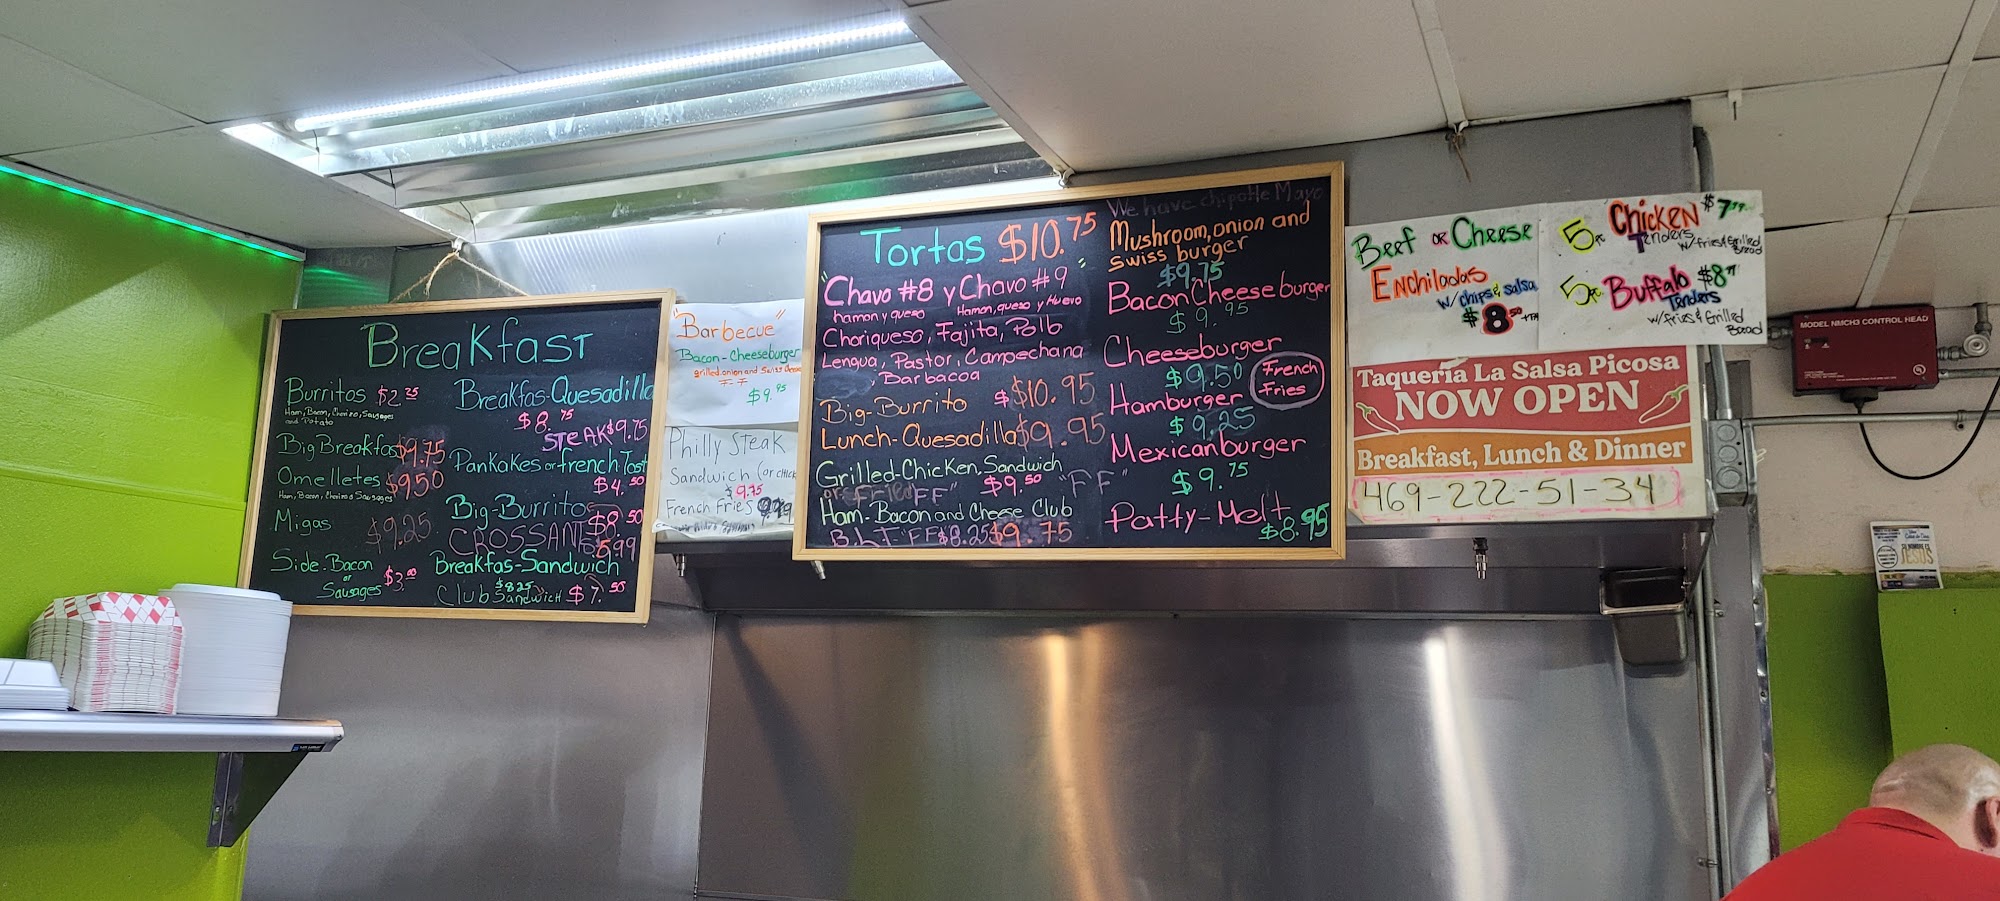 BreakfasT
Burritos $2.25
Ham, Bacon, Chorizo, Sausages
and Potato
Big Breakfas $9.75
Omelletes $9.50
Ham, Bacon, Chorizo & Sausages
Migas $9.25
Side. Bacon
or
Sausages $3.00
Breakfas-Quesadilla
$8.75
STEAK $9.75
Pankakes or french Tost
$4.50
Big-Burritos
$8.50
CROSSANT
5.99
Breakfas-Sandwich
$7.50
Club Sandwich
$8.25
"Barbecue"
Bacon-Cheeseburger
grilled onion and Swiss
F F
$9.95
Philly Steak
Sandwich (or
$9.75
French Fries
Tortas $10.75
"Chavo #8 y Chavo #9"
hamon y queso
Hamon, queso y Huevo
Choriqueso, Fajita, Pollo
Lengua, Pastor, Campechana
, Barbacoa
Big-Burrito $10.95
Lunch-Quesadilla $9.95
Grilled-Chicken, Sandwich
or Fried "FF" $9.50
Ham-Bacon and Cheese Club
"FF" $9.75
BLT "FF" $8.25
We have chipotle Mayo
Mushroom, onion and
Swiss burger
$9.75
Bacon Cheeseburger
$9.95
Cheeseburger
$9.50
Hamburger
$9.25
French
Fries
Mexicanburger
"FF"
$9.75
Patty-Melt
$8.95
Beef or Cheese
Enchiladas
w/ chips & salsa
$8.50
5pc Chicken
Tenders
w/fries & Grilled
Bread
5pc Buffalo
Tenders
w/fries & Grilled
Bread
Taqueria La Salsa Picosa
NOW OPEN
Breakfast, Lunch & Dinner
469-222-51-34
MODEL NMCH3 CONTROL HEAD
JESÚS